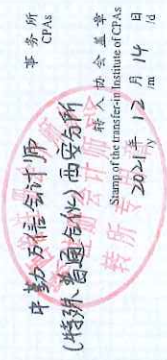 中勤万信会计师
事务所
CPAs
(特殊普通合伙)西安分所
转入协会盖章
Stamp of the transfer-in Institute of CPAs
2021年12月14日
/y /m /d